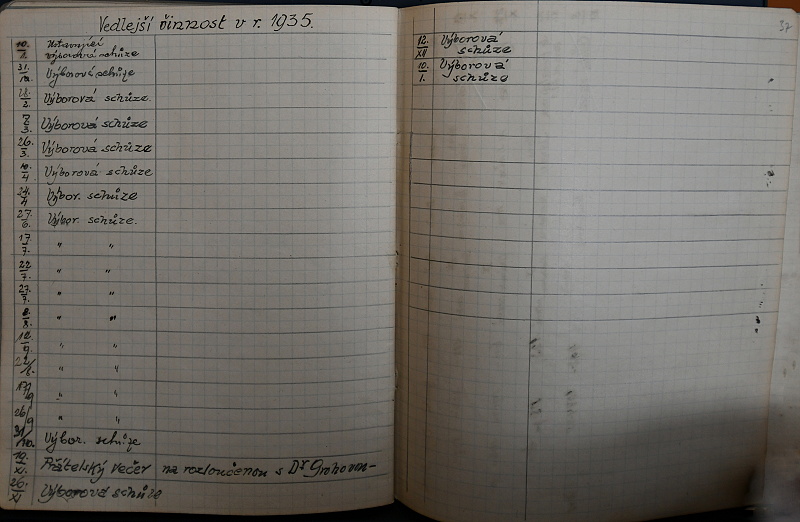 Vedlejší činnost v r. 1935.
10. Ustavující
1. výborová schůze
31. Výborová schůze
18. Výborová schůze.
2.
7. Výborová schůze
3.
26. Výborová schůze
3.
10. Výborová schůze
4
24. Výbor. schůze
4
27. Výbor. schůze.
6.
17. " "
7.
22 " "
7.
27. " "
7.
" "
8.
12. " "
" "
" "
9
26 " "
9
31 Výbor. schůze
10.
19. Přátelský večer na rozloučenou s Dr
XI.
26. Výborová schůze
XI
37
12. Výborová
XII schůze
10. Výborová
1. schůze